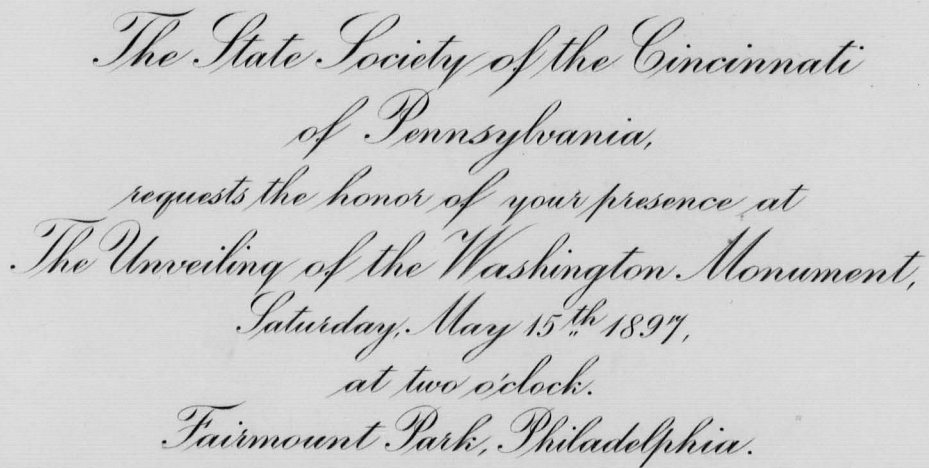 The State Society of the Cincinnati
of Pennsylvania,
requests the honor of your presence at
The Unveiling of the Washington Monument,
Saturday, May 15th 1897,
at two o'clock.
Fairmount Park, Philadelphia.